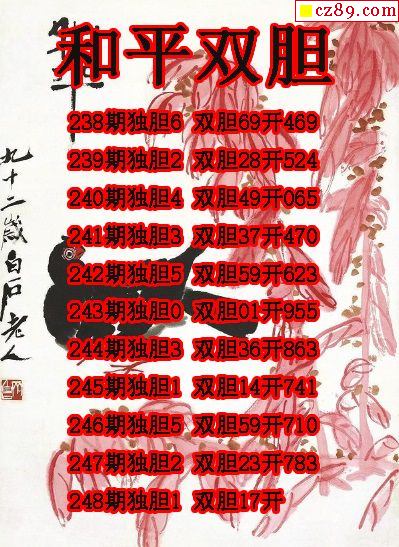 cz89.com
和平双胆
238期独胆6 双胆69开469
239期独胆2 双胆28开524
240期独胆4 双胆49开065
241期独胆3 双胆37开470
242期独胆5 双胆59开623
243期独胆0 双胆01开955
244期独胆3 双胆36开863
245期独胆1 双胆14开741
246期独胆5 双胆59开710
247期独胆2 双胆23开783
248期独胆1 双胆17开
九十二岁白石老人